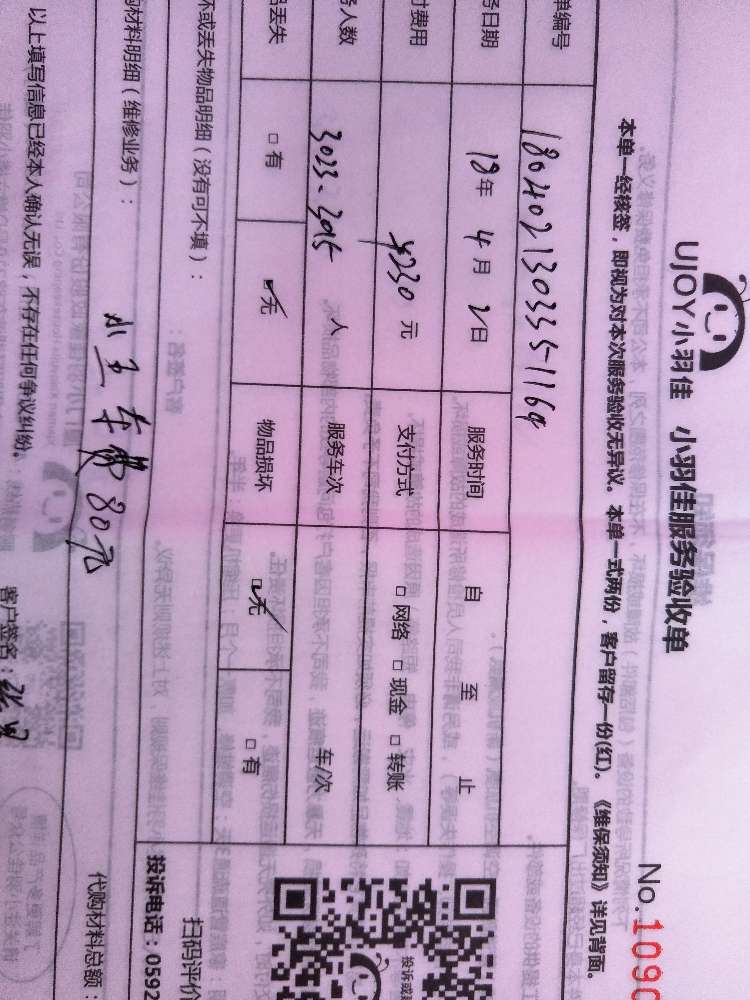 UJOY小羽佳 小羽佳服务验收单
No.1090
本单一经核签，即视为对本次服务验收无异议。本单一式两份，客户留存一份(红)。《维保须知》详见背面。
单编号 180402130335-1169
务日期 18年4月2日 服务时间 自 至 止
付费用 元 支付方式 □网络 □现金 □转账
务人数 人 服务车次 车/次
品丢失 □有 □无 物品损坏 □无 □有
坏或丢失物品明细（没有可不填）：
扫码评价
投诉电话：0592
购材料明细（维修业务）：
车费80元
代购材料总额：
以上填写信息已经本人确认无误，不存在任何争议纠纷。
客户签名：张